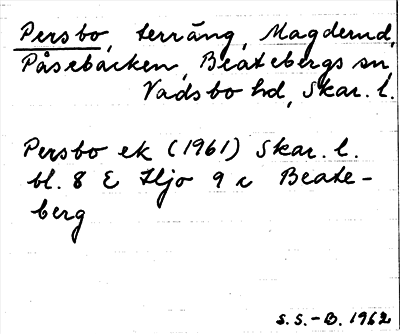 Persbo, terräng, Magderud,
Påsebäcken, Beatebergs sn,
Vadsbo hd, Skar. l.
Persbo ek (1961) Skar. l.
bl. 8 E Hjo 9 c Beate-
berg
S.S.-B. 1962